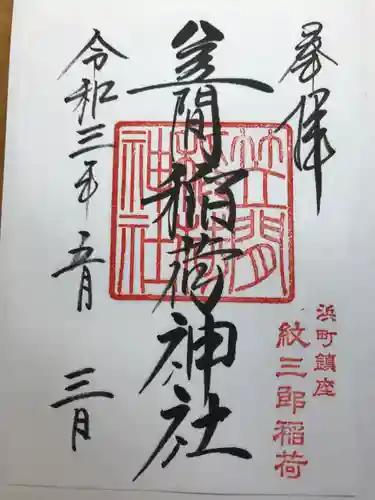 奉拝
笠間稲荷神社
令和三年 五月 三日
笠間
稲荷
神社
浜町鎮座
紋三郎稲荷